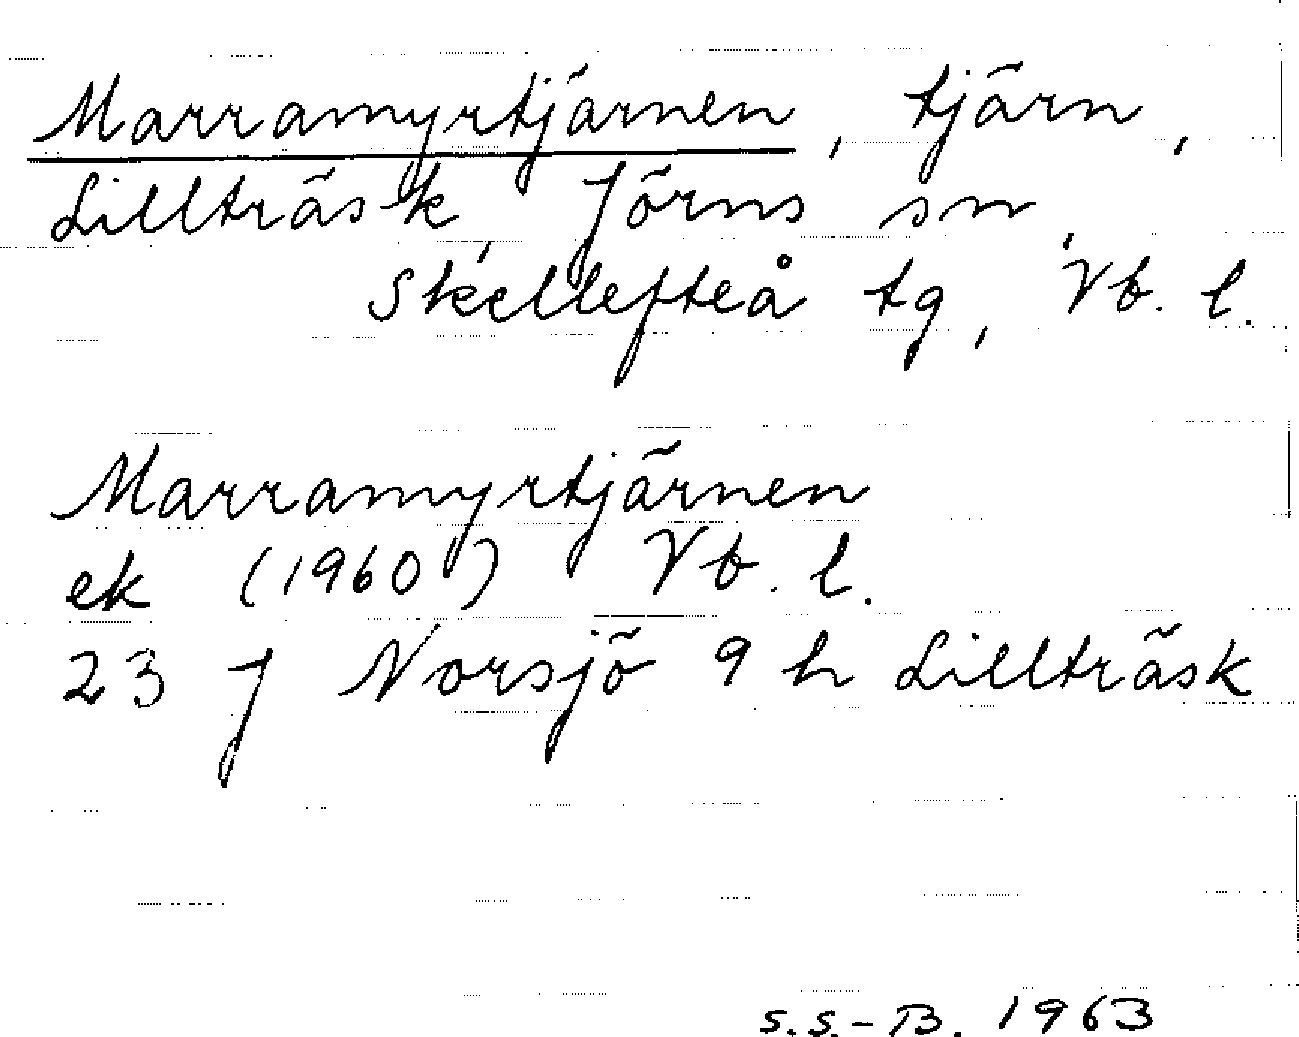 Marramyrtjärnen, tjärn,
Lillträsk, Jörns sn,
Skellefteå tg, Vb. l.
Marramyrtjärnen
ek (1960) Vb. l.
23 J Norsjö 9 h Lillträsk
S.S.-B. 1963